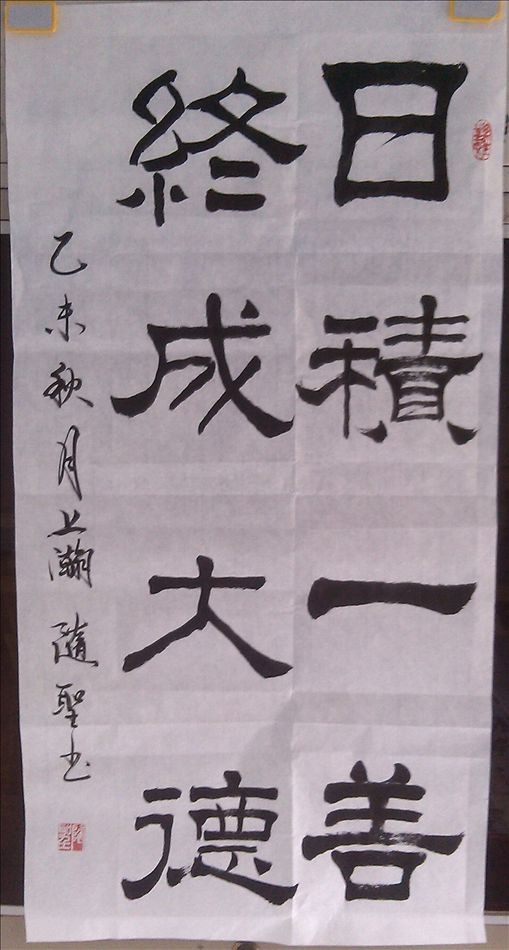 日積一善
終成大德
乙未秋月上瀚隨聖书